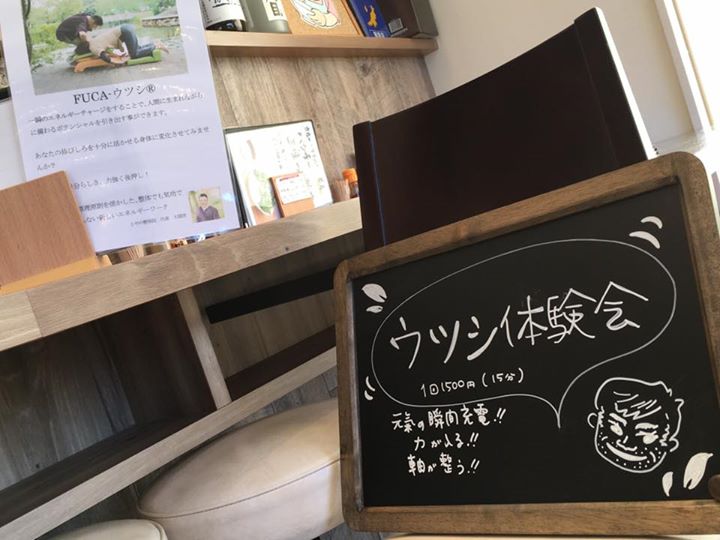 FUCA-ウツシ®
一瞬のエネルギーチャージをすることで、人間に生まれながら
に備わるポテンシャルを引き出す事ができます。
あなたの伸びしろを十分に活かせる身体に変化させてみませ
んか?
力強く後押し!
ウツシ体験会
1回1500円(15分)
元氣の瞬間充電!!
力が入る!!
軸が整う!!